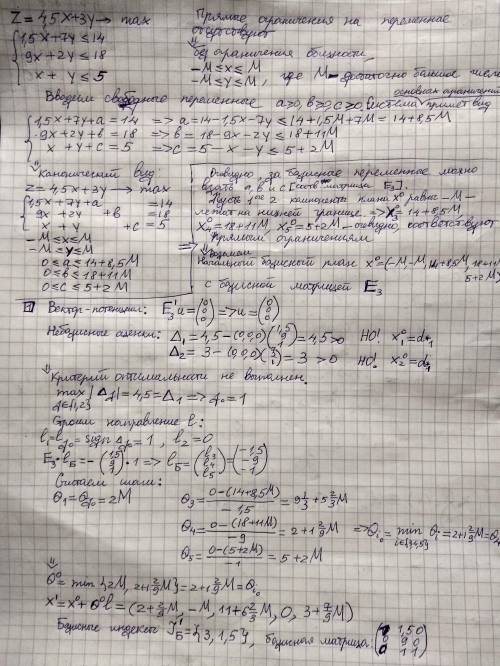 Z = 4,5x+3y → max
Прямые ограничения на переменные
отсутствуют
1,5x+7y ≤ 14
9x+2y ≤ 18
x + y ≤ 5
⇓ без ограничения общности,
-M ≤ x ≤ M
-M ≤ y ≤ M, где M - достаточно большое число
основных ограничений
Вводим свободные переменные a ≥ 0, b ≥ 0, c ≥ 0, система примет вид
1,5x+7y+a = 14 => a = 14-1,5x-7y ≤ 14+1,5M+7M = 14+8,5M
9x+2y+b = 18 => b = 18-9x-2y ≤ 18+11M
x + y + c = 5 => c = 5-x-y ≤ 5+2M
⇓ Канонический вид:
z = 4,5x+3y → max
1,5x+7y+a =14
9x + 2y +b =18
x + y +c = 5
-M ≤ x ≤ M
-M ≤ y ≤ M
0 ≤ a ≤ 14+8,5M
0 ≤ b ≤ 18+11M
0 ≤ c ≤ 5+2M
Очевидно, за базисные переменные можно
взять a, b и c [соотв матрица E₃].
Пусть 1ые 2 компоненты плана x⁰ равны -M -
лежат на нижней границе. => x₃⁰ = 14+8,5M
x₄⁰ = 18+11M, x₅⁰ = 5+2M - очевидно, соответствуют
прямым ограничениям
Начальный базисный план x⁰=(-M,-M,14+8,5M,18+11M,
5+2M)
с базисной матрицей E₃
1 Вектор-потенциал: E₃'u = (0 0 0) => u = (0 0 0)
Небазисные оценки: Δ₁ = 4,5-(0,0,0)(1,5 9 1) = 4,5 > 0 НО! x₁⁰ = d*₁
Δ₂ = 3-(0,0,0)(7 2 1) = 3 > 0 НО! x₂⁰ = d*₂
⇓ Критерий оптимальности не выполнен.
max |Δj| = 4,5 = Δ₁ => j₀ = 1
j∈{1,2}
Строим направление l:
l₁ = lj₀ = sign Δj₀ = 1, l₂ = 0
E₃·lБ = -(1,5 9 1)·1 => lБ = (l₃ l₄ l₅) = (-1,5 -9 -1)
Считаем шаги:
Θ₁ = Θj₀ = 2M
Θ₃ = 0-(14+8,5M) / -1,5 = 9⅓ + 5⅔M
Θ₄ = 0-(18+11M) / -9 = 2+1 2/9 M => Θi₀ = min Θi = 2+1 2/9 M = Θ₄
i∈{3,4,5}
Θ₅ = 0-(5+2M) / -1 = 5+2M
⇓
Θ⁰ = min {2M, 2+1 2/9 M} = 2+1 2/9 M = Θi₀
x¹ = x⁰ + Θ⁰l = (2+2/9 M, -M, 11+6⅔M, 0, 3+7/9 M)
Базисные индексы J¹Б = {3,1,5}, базисная матрица (1 1,5 0
0 9 0
0 1 1)